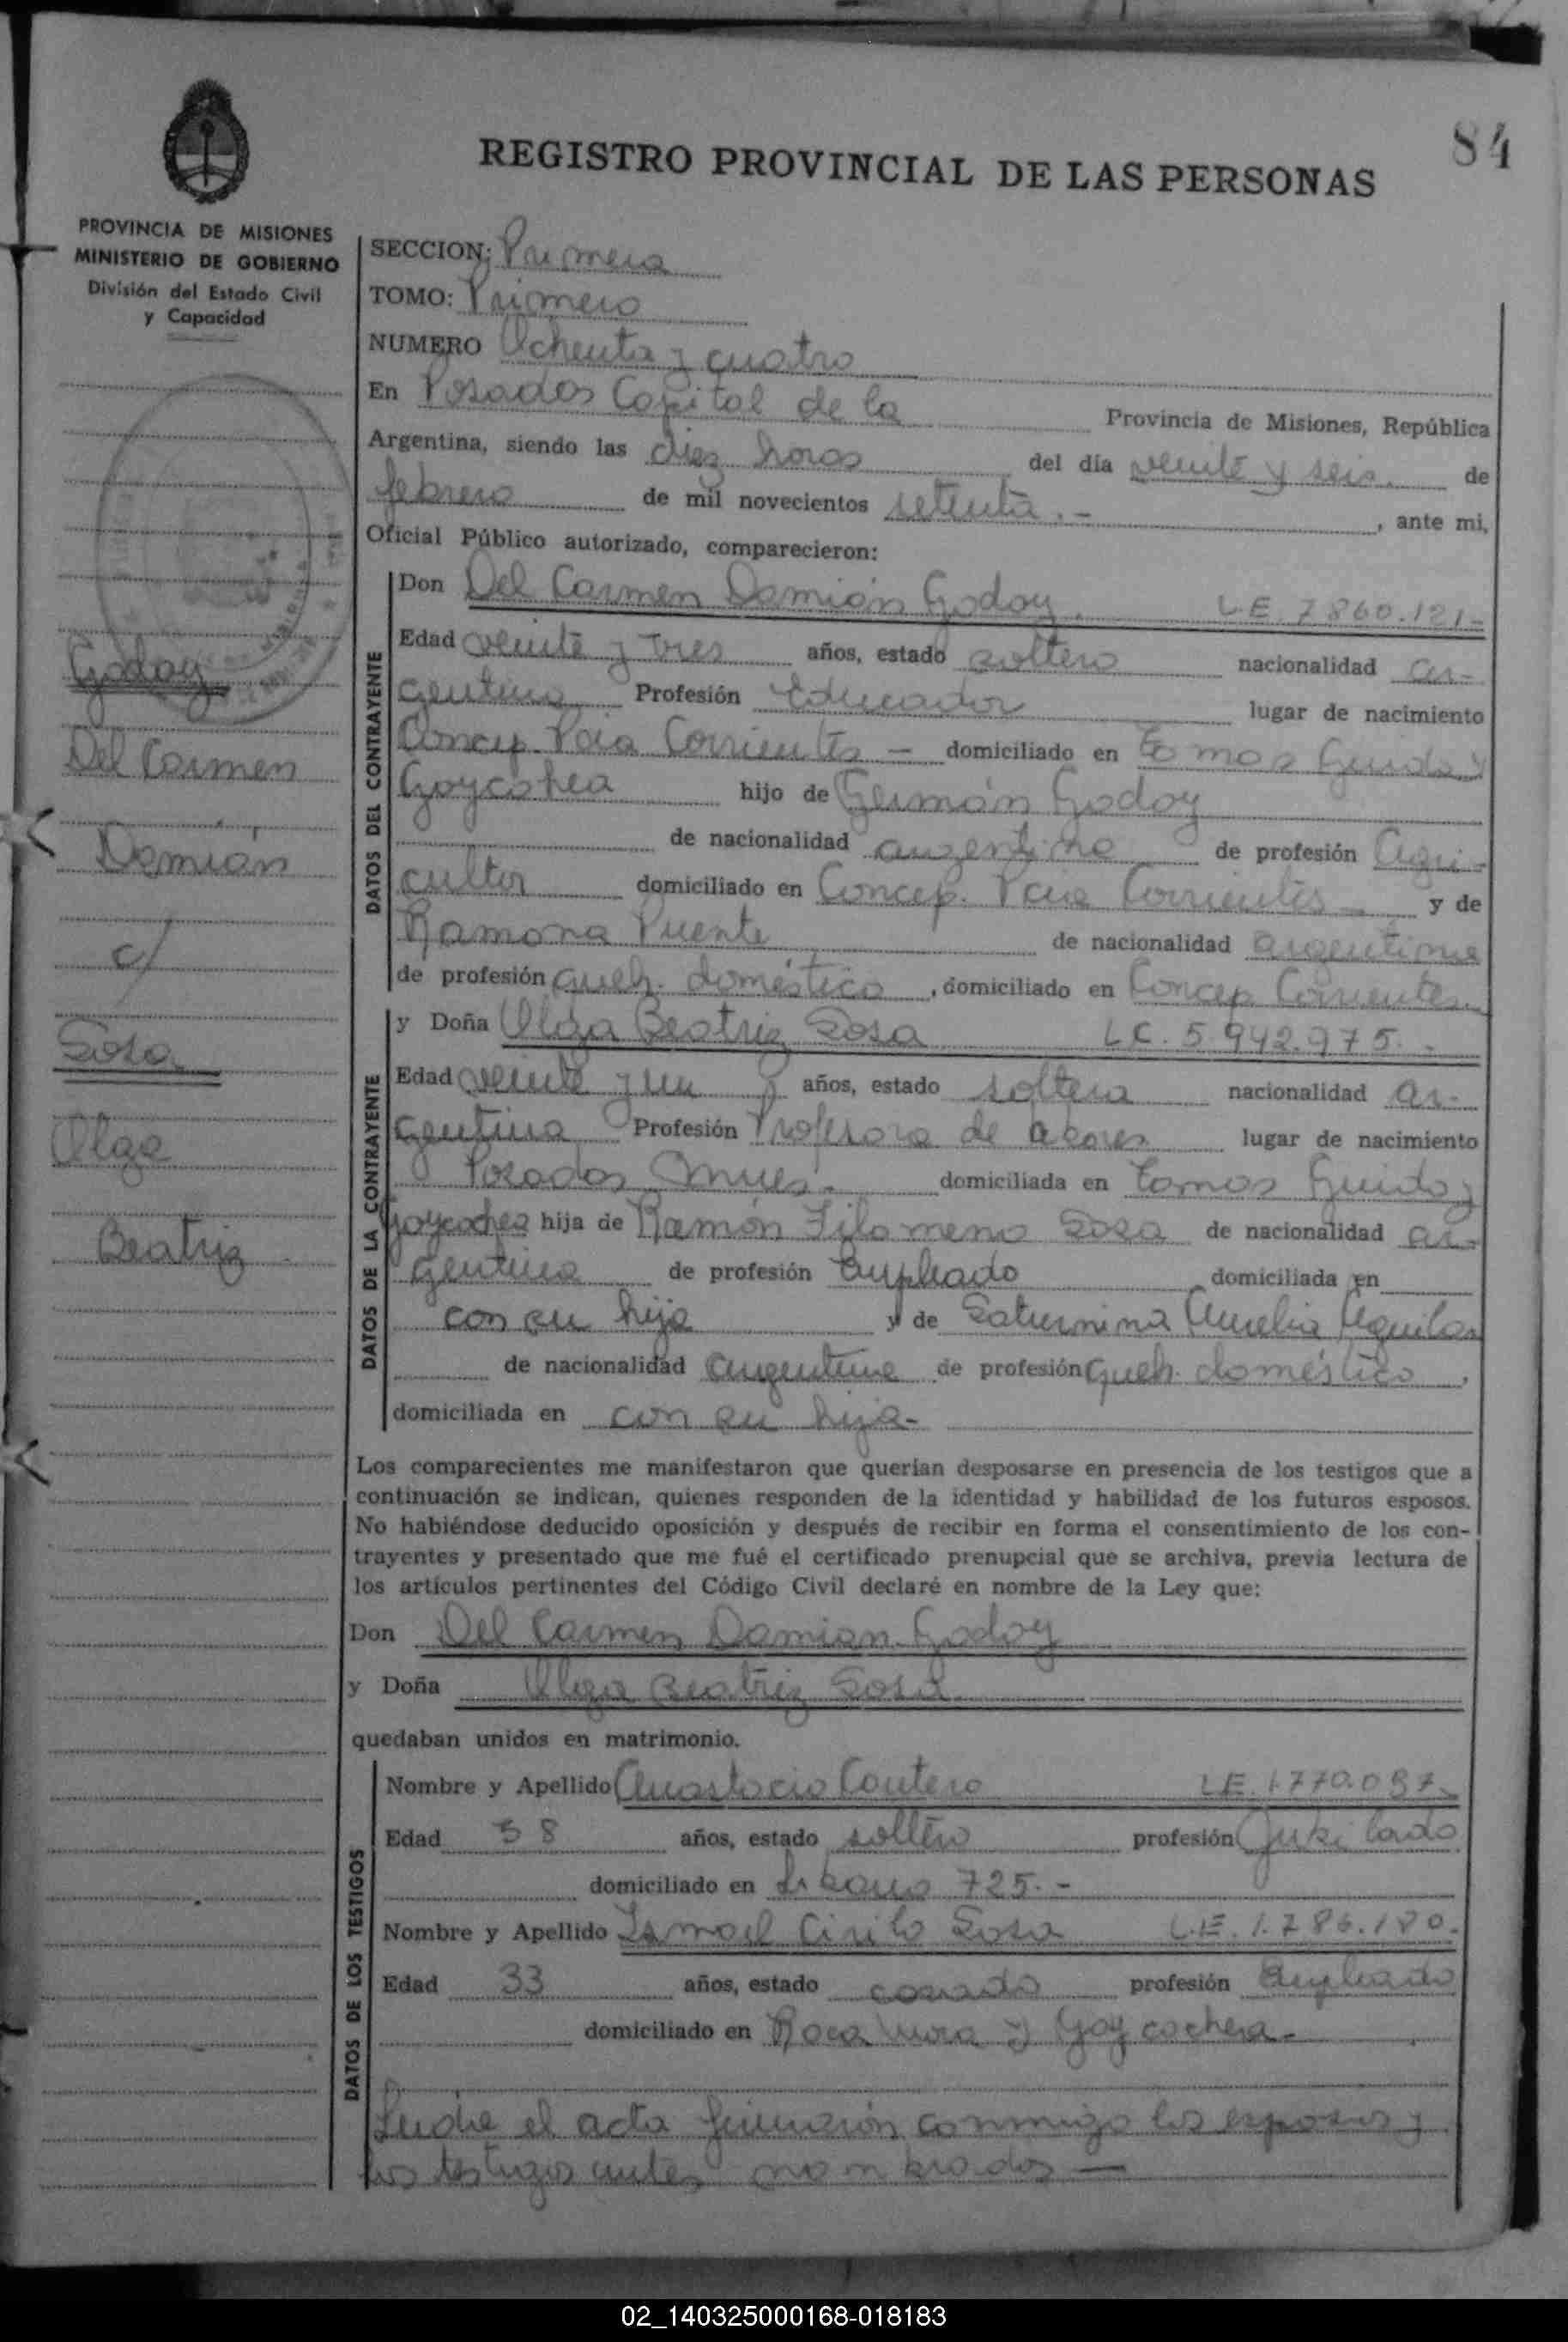 84
REGISTRO PROVINCIAL DE LAS PERSONAS
PROVINCIA DE MISIONES
MINISTERIO DE GOBIERNO
División del Estado Civil
y Capacidad
SECCION: Primera
TOMO: Primero
NUMERO Ochenta y cuatro
En Posadas Capital de la Provincia de Misiones, República
Argentina, siendo las diez horas del día veinte y seis de
febrero de mil novecientos setenta.- , ante mi,
Oficial Público autorizado, comparecieron:
Godoy
Del Carmen
Damián
c/
Sosa
Olga
Beatriz
DATOS DEL CONTRAYENTE
Don Del Carmen Damián Godoy. L.E. 7860.121-
Edad veinte y tres años, estado soltero nacionalidad ar-
gentina Profesión Educador lugar de nacimiento
Concep. Pcia Corrientes - domiciliado en Tomas Guido y
Goycochea hijo de Germán Godoy
de nacionalidad argentina de profesión Agri-
cultor domiciliado en Concep. Pcia Corrientes - y de
Ramona Puente de nacionalidad argentina
de profesión queh. doméstico , domiciliado en Concep Corrientes.
DATOS DE LA CONTRAYENTE
y Doña Olga Beatriz Sosa L.C. 5.942.975.-
Edad veinte y un años, estado soltera nacionalidad ar-
gentina Profesión Profesora de lugar de nacimiento
Posadas Mnes.- domiciliada en Tomas Guido y
Goycochea hija de Ramón Filomeno Sosa de nacionalidad ar-
gentina de profesión Empleado domiciliada en
con su hija y de Saturnina Aurelia Aguilar
de nacionalidad argentina de profesión queh. doméstico ,
domiciliada en con su hija-
Los comparecientes me manifestaron que querían desposarse en presencia de los testigos que a
continuación se indican, quienes responden de la identidad y habilidad de los futuros esposos.
No habiéndose deducido oposición y después de recibir en forma el consentimiento de los con-
trayentes y presentado que me fué el certificado prenupcial que se archiva, previa lectura de
los artículos pertinentes del Código Civil declaré en nombre de la Ley que:
Don Del Carmen Damian Godoy
y Doña Olga Beatriz Sosa
quedaban unidos en matrimonio.
DATOS DE LOS TESTIGOS
Nombre y Apellido Anastacio Contero L.E. 1.770.037-
Edad 58 años, estado soltero profesión Jubilado
domiciliado en 725.-
Nombre y Apellido Ismael Cirilo Sosa L.E. 1.786.180.
Edad 33 años, estado casado profesión Empleado
domiciliado en Roca y Goycochea-
Leída el acta firmaron conmigo los esposos y
los testigos antes nombrados -
02_140325000168-018183